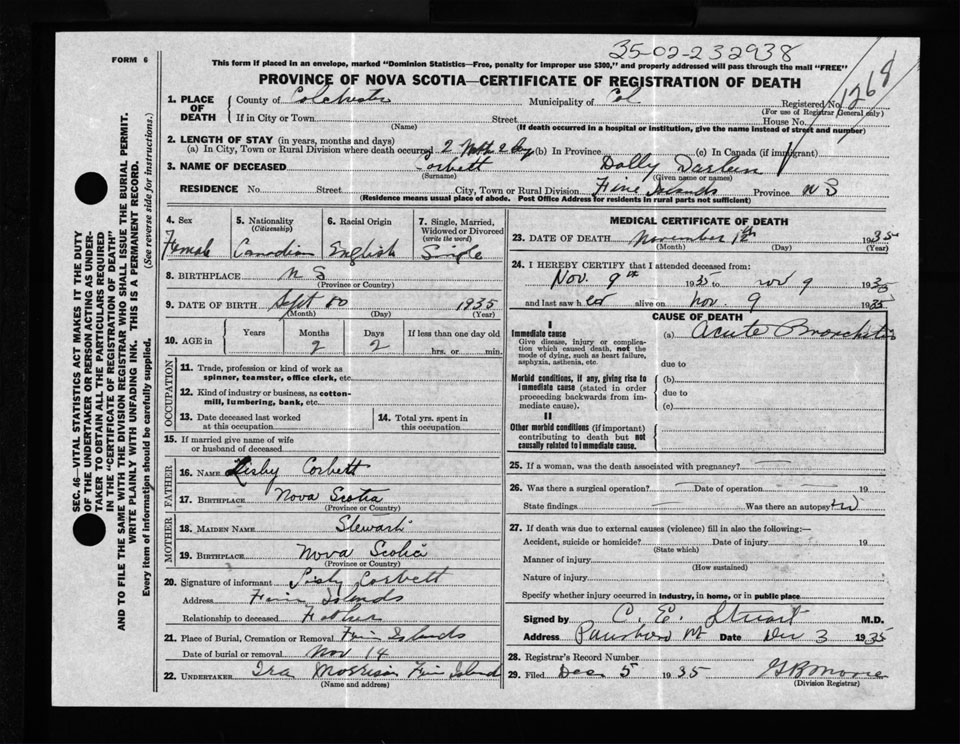 35-02-232938
FORM 6
This form if placed in an envelope, marked "Dominion Statistics—Free, penalty for improper use $300," and properly addressed will pass through the mail "FREE"
PROVINCE OF NOVA SCOTIA—CERTIFICATE OF REGISTRATION OF DEATH
1268
1. PLACE OF DEATH
County of Colchester Municipality of Col Registered No.
(For use of Registrar General only)
If in City or Town Street House No.
(Name) (If death occurred in a hospital or institution, give the name instead of street and number)
2. LENGTH OF STAY (in years, months and days)
(a) In City, Town or Rural Division where death occurred 2 Mths 2 day (b) In Province (c) In Canada (if immigrant)
3. NAME OF DECEASED Corbett Dolly
(Surname) (Given name or names)
RESIDENCE No. Street City, Town or Rural Division Five Islands Province N S
(Residence means usual place of abode. Post Office Address for residents in rural parts not sufficient)
4. Sex
Female
5. Nationality
(Citizenship)
Canadian
6. Racial Origin
English
7. Single, Married, Widowed or Divorced
(write the word)
Single
8. BIRTHPLACE N S
(Province or Country)
9. DATE OF BIRTH Sept 1935
(Month) (Day) (Year)
10. AGE in
Years Months Days If less than one day old
2 2 hrs. or min.
OCCUPATION
11. Trade, profession or kind of work as spinner, teamster, office clerk, etc.
12. Kind of industry or business, as cotton-mill, lumbering, bank, etc.
13. Date deceased last worked at this occupation
14. Total yrs. spent in this occupation
15. If married give name of wife or husband of deceased
FATHER
16. Name Corbett
17. Birthplace Nova Scotia
(Province or Country)
MOTHER
18. Maiden Name Stewart
19. Birthplace Nova Scotia
(Province or Country)
20. Signature of informant Corbett
Address Five Islands
Relationship to deceased Father
21. Place of Burial, Cremation or Removal Five Islands
Date of burial or removal Nov 14
22. Undertaker Ira Morrison Five Island
(Name and address)
MEDICAL CERTIFICATE OF DEATH
23. DATE OF DEATH November 1935
(Month) (Day) (Year)
24. I HEREBY CERTIFY that I attended deceased from:
Nov. 9th 193 to nov 9 1935
and last saw her alive on nov. 9 1935
CAUSE OF DEATH
I
Immediate cause
Give disease, injury or complication which caused death, not the mode of dying, such as heart failure, asphyxia, asthenia, etc.
(a) Acute Bronchitis
due to
Morbid conditions, if any, giving rise to immediate cause (stated in order proceeding backwards from immediate cause).
(b)
due to
(c)
II
Other morbid conditions (if important) contributing to death but not causally related to immediate cause.
25. If a woman, was the death associated with pregnancy?
26. Was there a surgical operation? Date of operation 19
State findings Was there an autopsy? no
27. If death was due to external causes (violence) fill in also the following:—
Accident, suicide or homicide? Date of injury 19
(State which)
Manner of injury
(How sustained)
Nature of injury
Specify whether injury occurred in industry, in home, or in public place
Signed by C. E. Stuart M.D.
Address Date Dec 3 1935
28. Registrar's Record Number
29. Filed Dec 5 1935
(Division Registrar)
SEC. 46—VITAL STATISTICS ACT MAKES IT THE DUTY
OF THE UNDERTAKER OR PERSON ACTING AS UNDER-
TAKER TO OBTAIN ALL THE PARTICULARS REQUIRED
IN THE "CERTIFICATE OF REGISTRATION OF DEATH"
AND TO FILE THE SAME WITH THE DIVISION REGISTRAR WHO SHALL ISSUE THE BURIAL PERMIT.
WRITE PLAINLY WITH UNFADING INK. THIS IS A PERMANENT RECORD.
Every item of information should be carefully supplied. (See reverse side for instructions.)